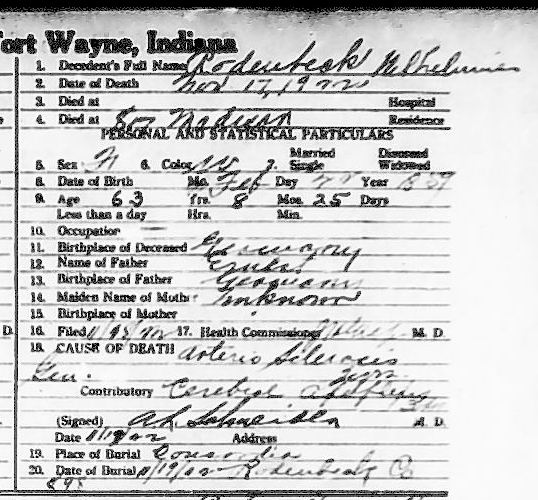 Fort Wayne, Indiana
1. Decedent's Full Name Rodenbeck Wilhelmine
2. Date of Death Nov 17, 1922
3. Died at Hospital
4. Died at Madison Residence
PERSONAL AND STATISTICAL PARTICULARS
5. Sex F 6. Color W 7. Married Single Divorced Widowed
8. Date of Birth Mo. Feb Day 22 Year 1859
9. Age 63 Yrs. 8 Mos. 25 Days
Less than a day Hrs. Min.
10. Occupation —
11. Birthplace of Deceased Germany
12. Name of Father
13. Birthplace of Father Germany
14. Maiden Name of Mother Unknown
15. Birthplace of Mother
D. 16. Filed 17. Health Commissioner M. D.
18. CAUSE OF DEATH Arterio Sclerosis
Gen.
Contributory Cerebral Apoplexy
(Signed) Schneider M. D.
Date 11/19/22 Address
19. Place of Burial Concordia
20. Date of Burial 11/19/22 Rodenbeck Co
898